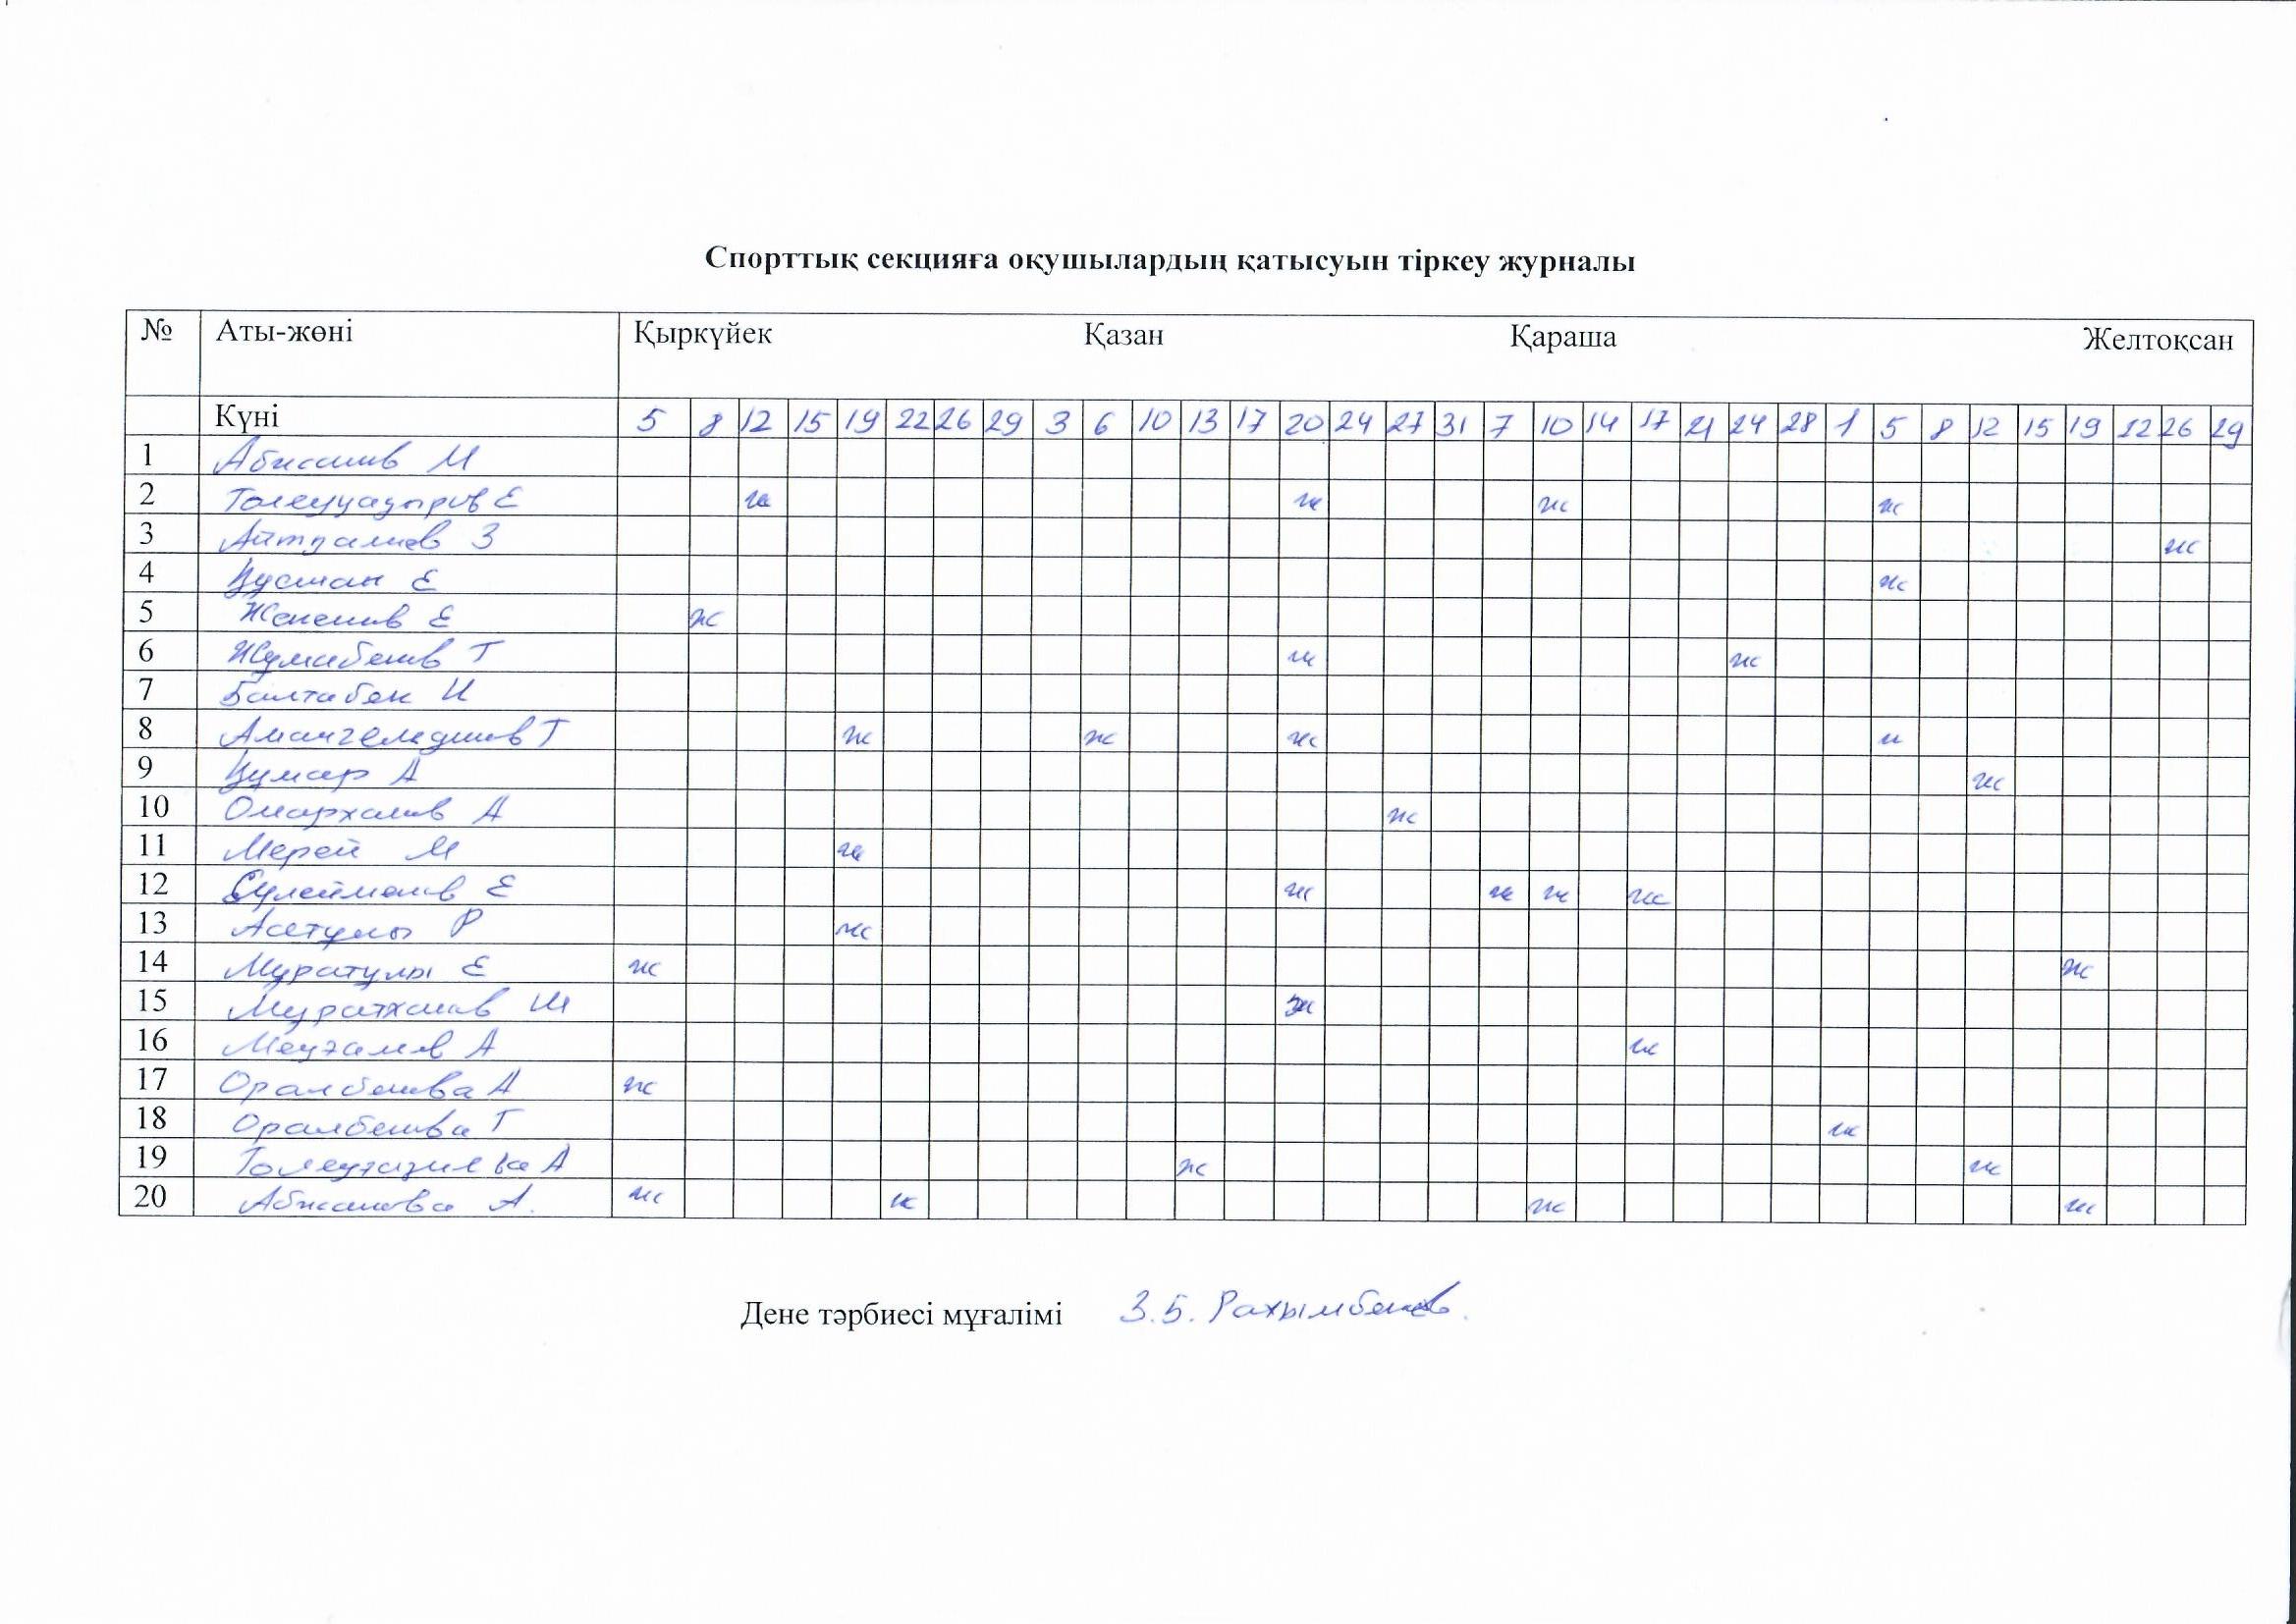 Спорттық секцияға оқушылардың қатысуын тіркеу журналы
№ Аты-жөні Қыркүйек Қазан Қараша Желтоқсан
Күні 5 8 12 15 19 22 26 29 3 6 10 13 17 20 24 27 31 7 10 14 17 21 24 28 1 5 8 12 15 19 22 26 29
1 Абжанов М
2 Е ж ж ж ж
3 Айтқалиев З ж
4 Құсман Е ж
5 Жененов Е ж
6 Жумабеков Т ж ж
7 Балтабек И
8 Амангелдинов Т ж ж ж ж
9 Құмар А ж
10 Омарханов А ж
11 Мерей М ж
12 Сулейманов Е ж ж ж ж
13 Асетұлы Р ж
14 Мұратұлы Е ж ж
15 Муратханов Ш ж
16 А ж
17 Оралбекова А ж
18 Оралбекова Г ж
19 А ж ж
20 Абжанова А. ж ж ж ж
Дене тәрбиесі мұғалімі З.Б. Рахымбеков.